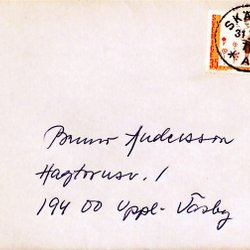 SKÄ
31
35
Benno Andersson
Hagtornsv. 1
194 00 Uppl-Väsby